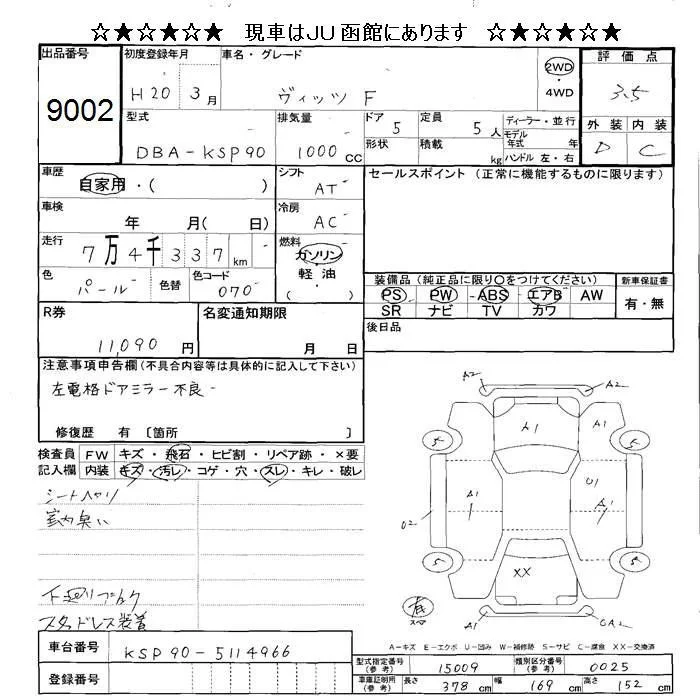 ☆★☆★☆★ 現車はJU函館にあります ☆★☆★☆★
出品番号
9002
初度登録年月
H20 3月
車名・グレード
ヴィッツ F
2WD
・
4WD
評価点
3.5
外装 内装
D C
型式
DBA-KSP90
排気量
1000cc
ドア
5
形状
定員
5人
積載
kg
ディーラー・並行
モデル
年式 年
ハンドル 左・右
車歴
自家用・( )
シフト
AT
車検
年 月( 日)
冷房
AC
走行
7万4千337km
燃料
ガソリン
・
軽油
( )
色
パール
色替
色コード
070
セールスポイント(正常に機能するものに限ります)
装備品(純正品に限り○をつけてください)
PS PW ABS エアB AW
SR ナビ TV カワ
新車保証書
有・無
後日品
R券
11,090円
名変通知期限
月 日
注意事項申告欄(不具合内容等は具体的に記入して下さい)
左電格ドアミラー不良
修復歴 有 〔箇所 〕
検査員
記入欄
FW キズ・飛石・ヒビ割・リペア跡・×要
内装 キズ・汚レ・コゲ・穴・スレ・キレ・破レ
シートヘタリ
室内臭い
スタッドレス装着
A2
A2
A1
A1
5
5
A1
U1
A1
U2
5
5
XX
有
スペア
A1
UA2
A-キズ E-エクボ U-凹み W-補修跡 S-サビ C-腐食 XX-交換済
車台番号
KSP90-5114966
登録番号
型式指定番号
(参考)
15009
類別区分番号
(参考)
0025
車庫証明用
(参考)
長さ 378cm 幅 169cm 高さ 152cm